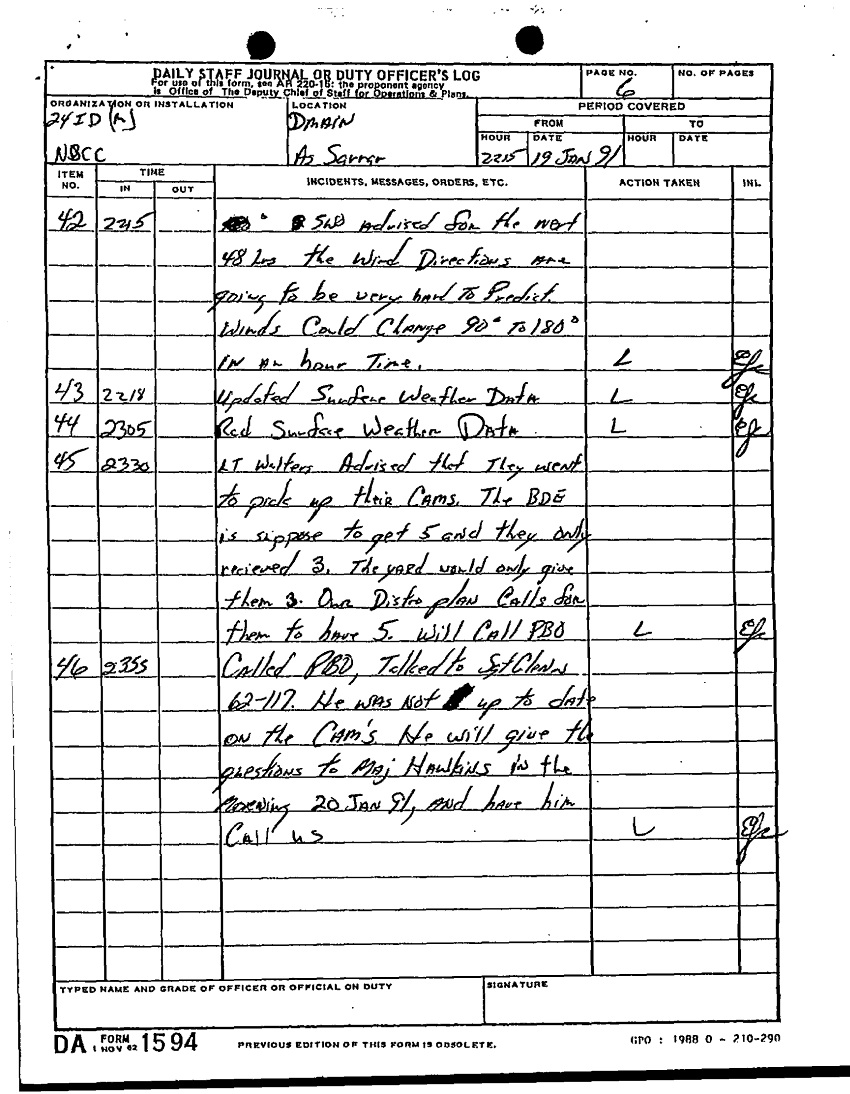 DAILY STAFF JOURNAL OR DUTY OFFICER'S LOG
For use of this form, see AR 220-15; the proponent agency
is Office of The Deputy Chief of Staff for Operations & Plans.
PAGE NO.
6
NO. OF PAGES
ORGANIZATION OR INSTALLATION
24 ID (M)
NBCC
LOCATION
DMAIN
As Sarrar
PERIOD COVERED
FROM
TO
HOUR
DATE
HOUR
DATE
2215
19 JAN 91
ITEM NO.
TIME
IN
OUT
INCIDENTS, MESSAGES, ORDERS, ETC.
ACTION TAKEN
INL
42 2215 SWO Advised for the next
48 hrs the Wind Directions are
going to be very hard To Predict.
Winds Could Change 90° To 180°
IN an hour Time. L
43 2218 Updated Surface Weather Data L
44 2305 Rcd Surface Weather Data L
45 2330 LT Walters Advised that They went
to pick up their Cams. The BDE
is suppose to get 5 and they only
recieved 3. The yard would only give
them 3. Our Distro plan Calls for
them to have 5. Will Call PBO L
46 2355 Called PBO, Talked to Sgt
62-117. He was Not up to date
on the CAM's. He will give the
questions to Maj Hawkins in the
Morning 20 JAN 91, and have him
Call us L
TYPED NAME AND GRADE OF OFFICER OR OFFICIAL ON DUTY
SIGNATURE
DA FORM 1 NOV 62 1594
PREVIOUS EDITION OF THIS FORM IS OBSOLETE.
GPO : 1988 O - 210-290